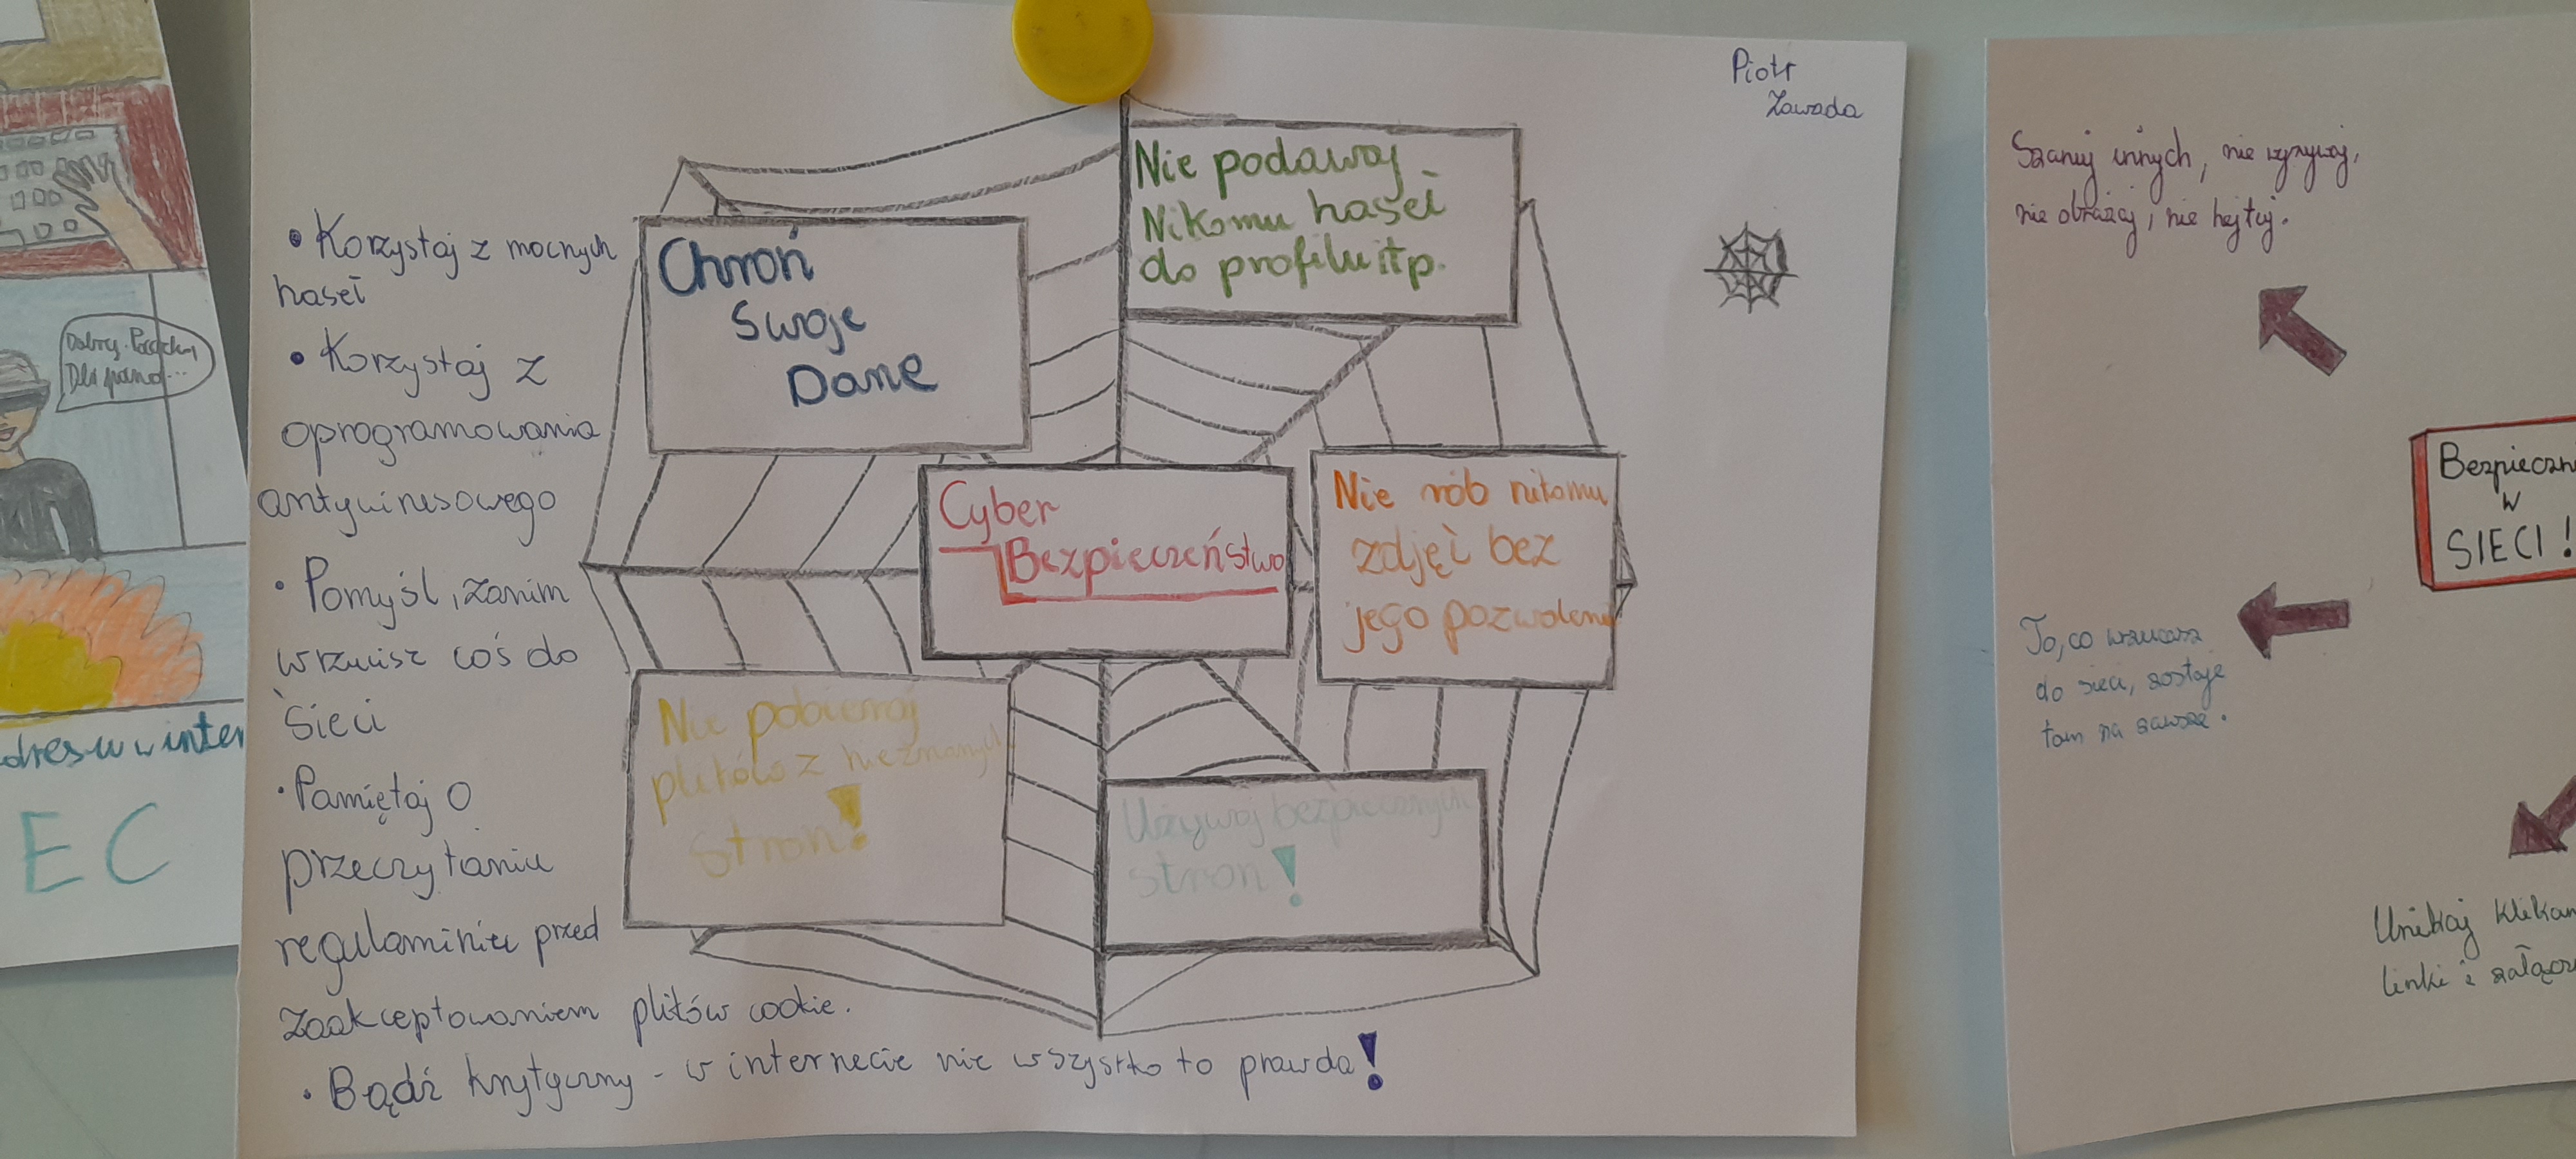 Piotr
Zawada
• Korzystaj z mocnych
haseł
• Korzystaj z
oprogramowania
antywirusowego
• Pomyśl, zanim
wrzucisz coś do
sieci
• Pamiętaj o
przeczytaniu
regulaminu przed
zaakceptowaniem plików cookie.
• Bądź krytyczny - w internecie nie wszystko to prawda!
Chroń
Swoje
Dane
Nie podawaj
Nikomu haseł
do profilu itp.
Cyber
Bezpieczeństwo
Nie rób nikomu
zdjęć bez
jego pozwolenia
Nie pobieraj
plików z nieznanych
stron!
Używaj bezpiecznych
stron!
Dla pana...
w inter
EC
Szanuj innych, nie wyzywaj,
nie obrażaj, nie hejtuj.
Bezpieczn
W
SIECI!
To, co wrzucasz
do sieci, zostaje
tam na zawsze.
Unikaj klikan
linki i załącz